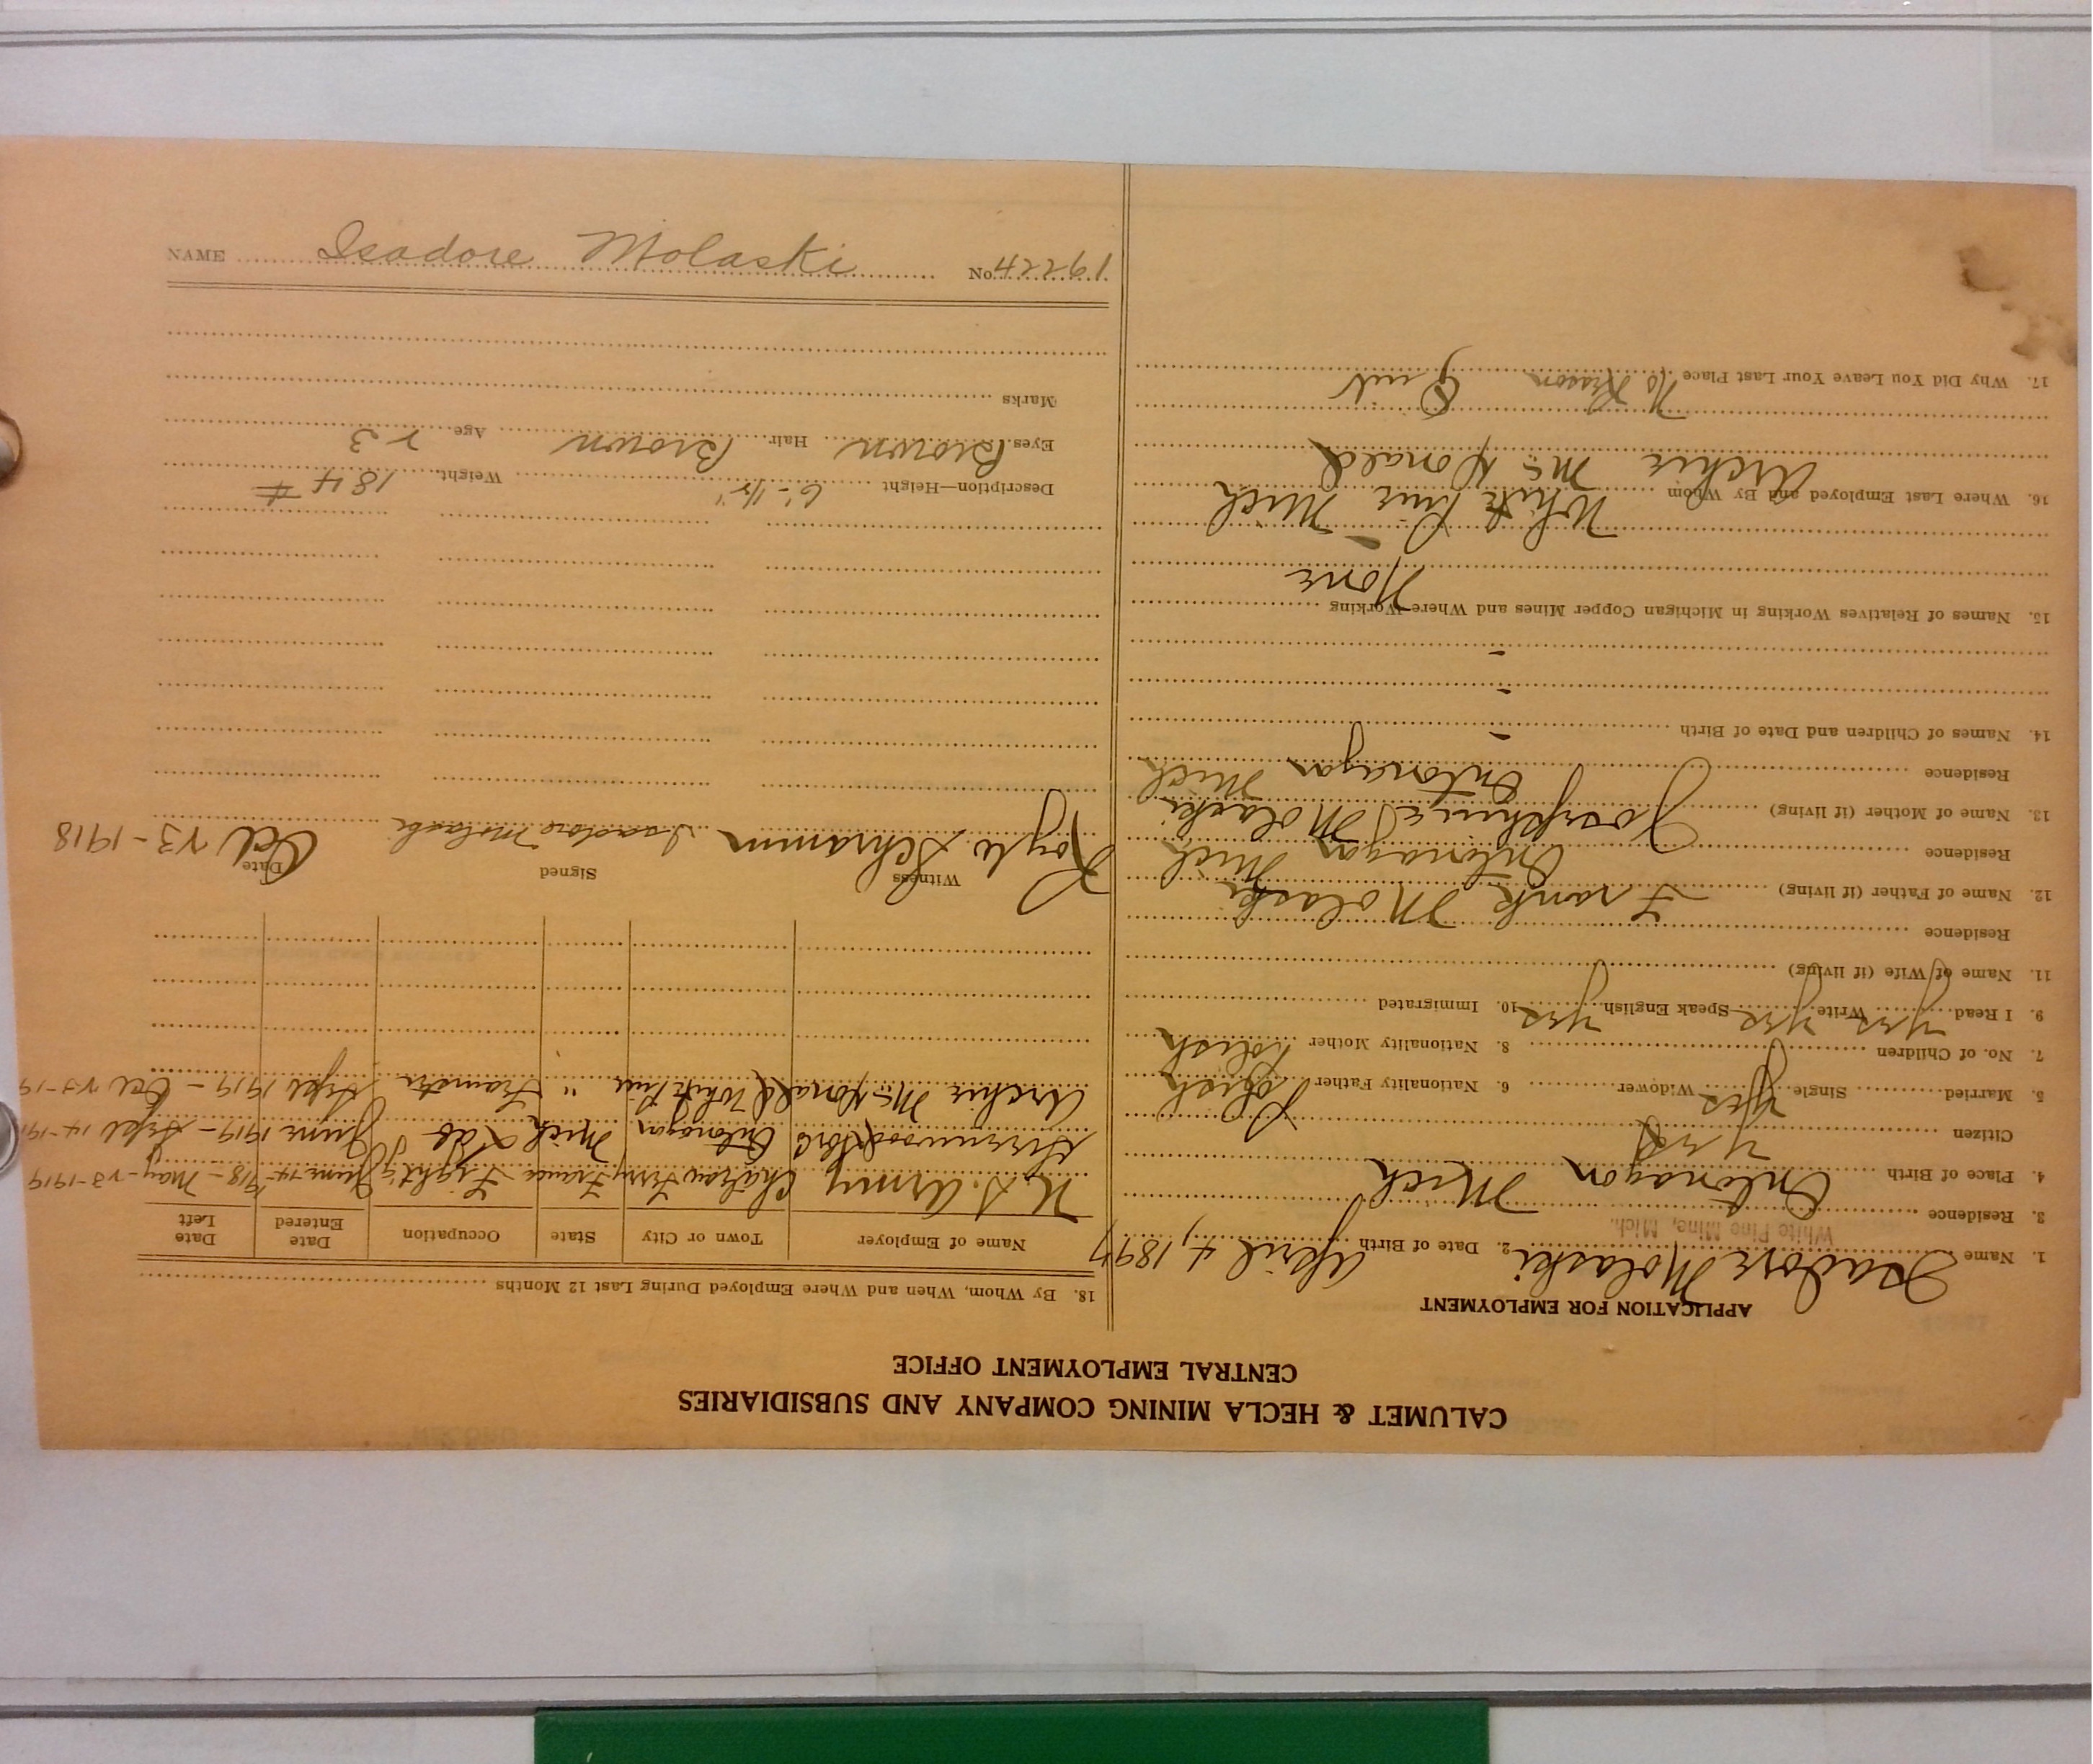 CALUMET & HECLA MINING COMPANY AND SUBSIDIARIES
CENTRAL EMPLOYMENT OFFICE
APPLICATION FOR EMPLOYMENT
1. Name Isadore Molaski 2. Date of Birth April 4, 1897
White Pine Mine, Mich.
3. Residence
Ontonagon Mich
4. Place of Birth
yes
Citizen
5. Married Single Yes Widower 6. Nationality Father Polish
7. No. of Children 8. Nationality Mother Polish
9. I Read yes Write yes Speak English yes 10. Immigrated
11. Name of Wife (if living)
Residence
12. Name of Father (if living) Frank Molaski
Residence Ontonagon Mich
13. Name of Mother (if living) Josephine Molaski
Residence Ontonagon Mich
14. Names of Children and Date of Birth -
-
-
15. Names of Relatives Working in Michigan Copper Mines and Where Working
None
-
White Pine Mich
16. Where Last Employed and By Whom
Archie McDonald
No Reason Quit
17. Why Did You Leave Your Last Place
18. By Whom, When and Where Employed During Last 12 Months
Name of Employer Town or City State Occupation Date Entered Date Left
U.S. Army France June 14 1918 - May - 23-1919
Greenwood Ontonagon Mich Lab June 1919 - Sept 14-191
Archie McDonald White Pine " Teamster Sept 1919 - Oct 23-19
Witness Signed Date
Schramm Isadore Molaski Oct 23-1918
Description—Height 6'- Weight 184 #
Eyes Brown Hair Brown Age 23
Marks
NAME Isadore Molaski No. 19224